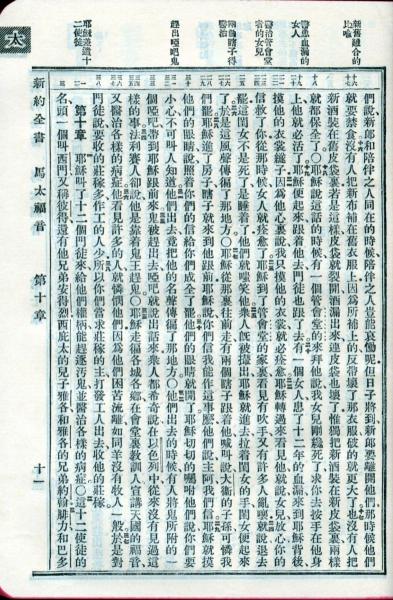 太
新舊難合的
比喻
醫治管會堂
者的女兒
醫患血漏的
女人
兩個瞎子得
醫治
趕出啞吧鬼
耶穌差遣十
二使徒
們說新郎和陪伴之人同在的時候陪伴之人豈能哀慟呢但日子將到新郎要離開他們那時候他們
就要禁食沒有人把新布補在舊衣服上因爲所補上的反帶壞了那衣服破的就更大了也沒有人把
新酒裝在舊皮袋裏若是這樣皮袋就裂開酒漏出來連皮袋也壞了惟獨把新酒裝在新皮袋裏兩樣
就都保全了○耶穌說這話的時候有一個管會堂的來拜他說我女兒剛纔死了求你去按手在他身
上他就必活了耶穌便起來跟着他去門徒也跟了去有一個女人患了十二年的血漏來到耶穌背後
摸他的衣裳繸子因爲他心裏說我只摸他的衣裳就必痊愈耶穌轉過來看見他就說女兒放心你的
信救了你從那時候女人就痊愈了耶穌到了管會堂的家裏看見有吹手又有許多人亂嚷就說退去
罷這閨女不是死了是睡着了他們就嗤笑他衆人旣被攆出耶穌就進去拉着閨女的手閨女便起來
了於是這風聲傳徧了那地方○耶穌從那裏往前走有兩個瞎子跟着他喊叫說大衛的子孫可憐我
們罷耶穌進了房子瞎子就來到他跟前耶穌說你們信我能作這事麼他們說主阿我們信耶穌就摸
他們的眼睛說照着你們的信給你們成全了罷他們的眼睛就開了耶穌切切的囑咐他們說你們要
小心不可叫人知道他們出去竟把他的名聲傳徧了那地方○他們出去的時候有人將鬼所附的一
個啞吧帶到耶穌跟前來鬼被趕出去啞吧就說出話來衆人都希奇說在以色列中從來沒有見過這
樣的事法利賽人却說他是靠着鬼王趕鬼○耶穌走徧各城各鄉在會堂裏敎訓人宣講天國的福音
又醫治各樣的病症他看見許多的人就憐憫他們因爲他們困苦流離如同羊沒有牧人一般於是對
門徒說要收的莊稼多作工的人少所以你們當求莊稼的主打發工人出去收他的莊稼
第十章 耶穌叫了十二個門徒來給他們權柄能趕逐汚鬼並醫治各樣的病症○這十二使徒的
名頭一個叫西門又稱彼得還有他兄弟安得烈西庇太的兒子雅各和雅各的兄弟約翰腓力和巴多
新約全書 馬太福音 第十章 十一